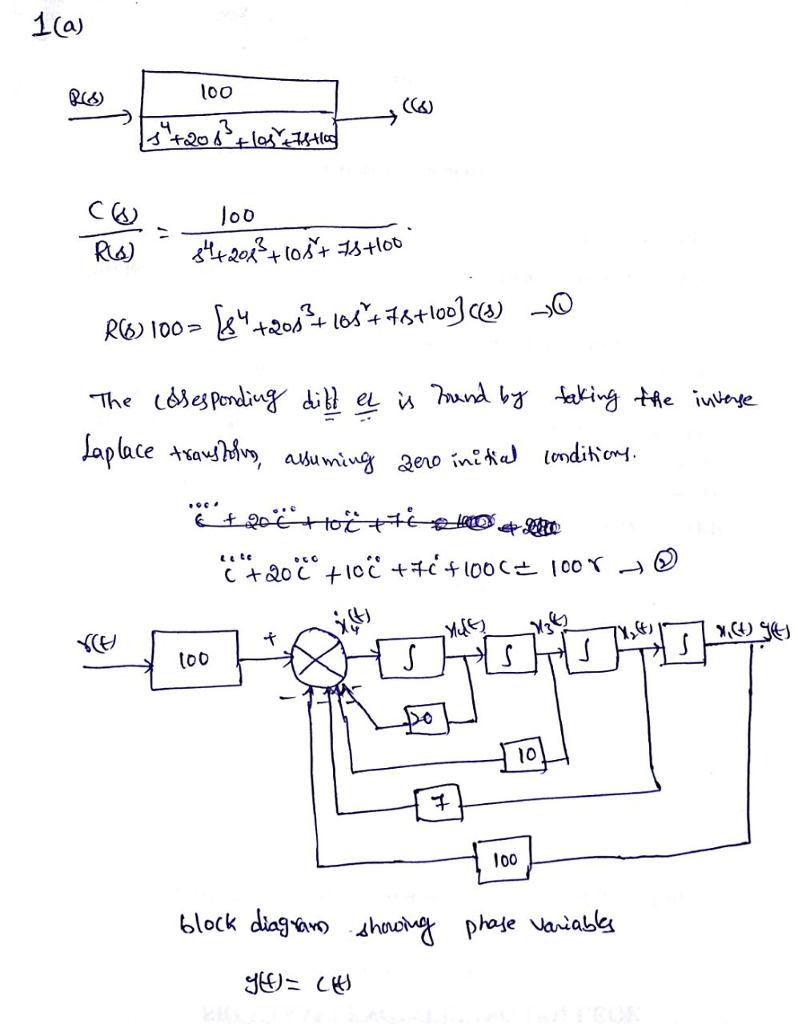 1(a)
R(s) 100 C(s)
s⁴+20s³+10s²+7s+100
C(s) 100
R(s) = s⁴+20s³+10s²+7s+100
R(s) 100 = [s⁴+20s³+10s²+7s+100] C(s) → ①
The corresponding diff eq is found by taking the inverse
Laplace transform, assuming zero initial conditions.
c⃜ + 20c⃛ + 10c̈ + 7ċ
c⃜ + 20c⃛ + 10c̈ + 7ċ + 100c = 100r → ②
r(t) 100 + ẋ₄(t) ∫ x₄(t) ∫ x₃(t) ∫ x₂(t) ∫ x₁(t) y(t)
- - - -
20
10
7
100
block diagram showing phase variables
y(t) = c(t)